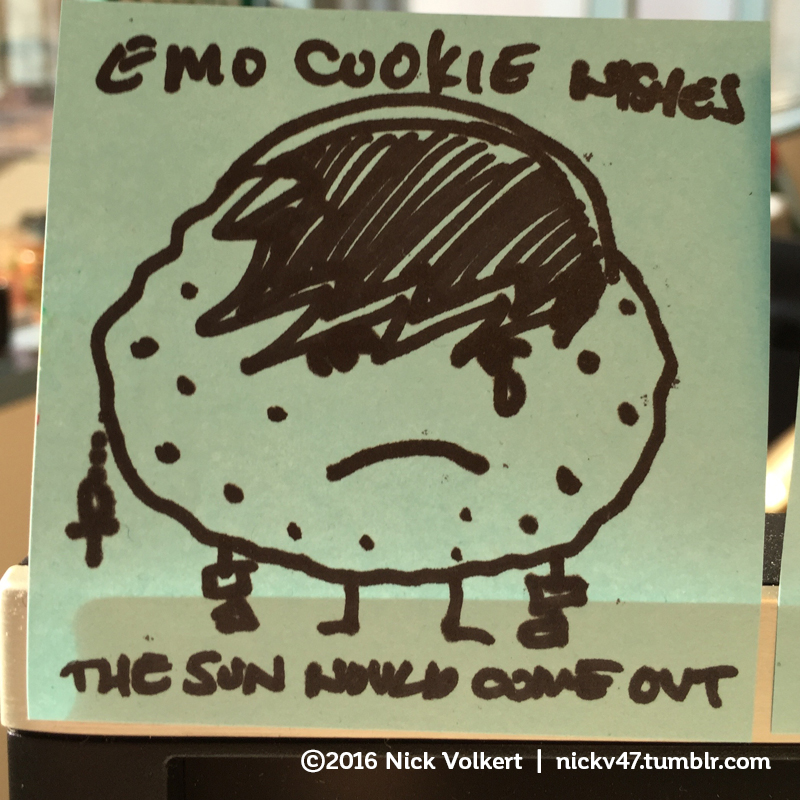 EMO COOKIE WISHES
THE SUN WOULD COME OUT
©2016 Nick Volkert | nickv47.tumblr.com